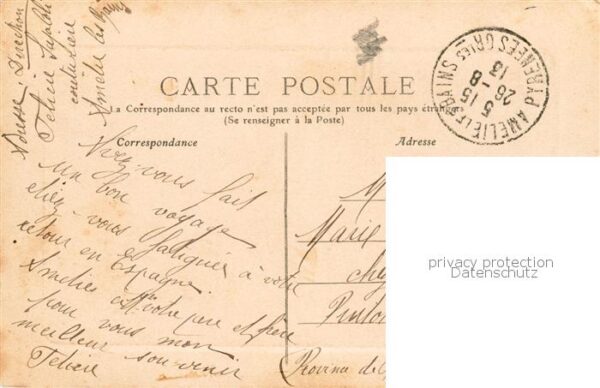 CARTE POSTALE
La Correspondance au recto n'est pas acceptée par tous les pays étrangers
(Se renseigner à la Poste)
Correspondance
Adresse
Avez-vous fait
un bon voyage
étiez-vous fatiguée à votre
retour en Espagne.
Amitiés à votre père et frère
pour vous mon
meilleur souvenir
Félicie
M
Marie
chez
Province de
Félicie
couturière
Amélie les Bains
AMELIE LES BAINS
PYRENEES ORIES
15
5
26-8
13
privacy protection
Datenschutz